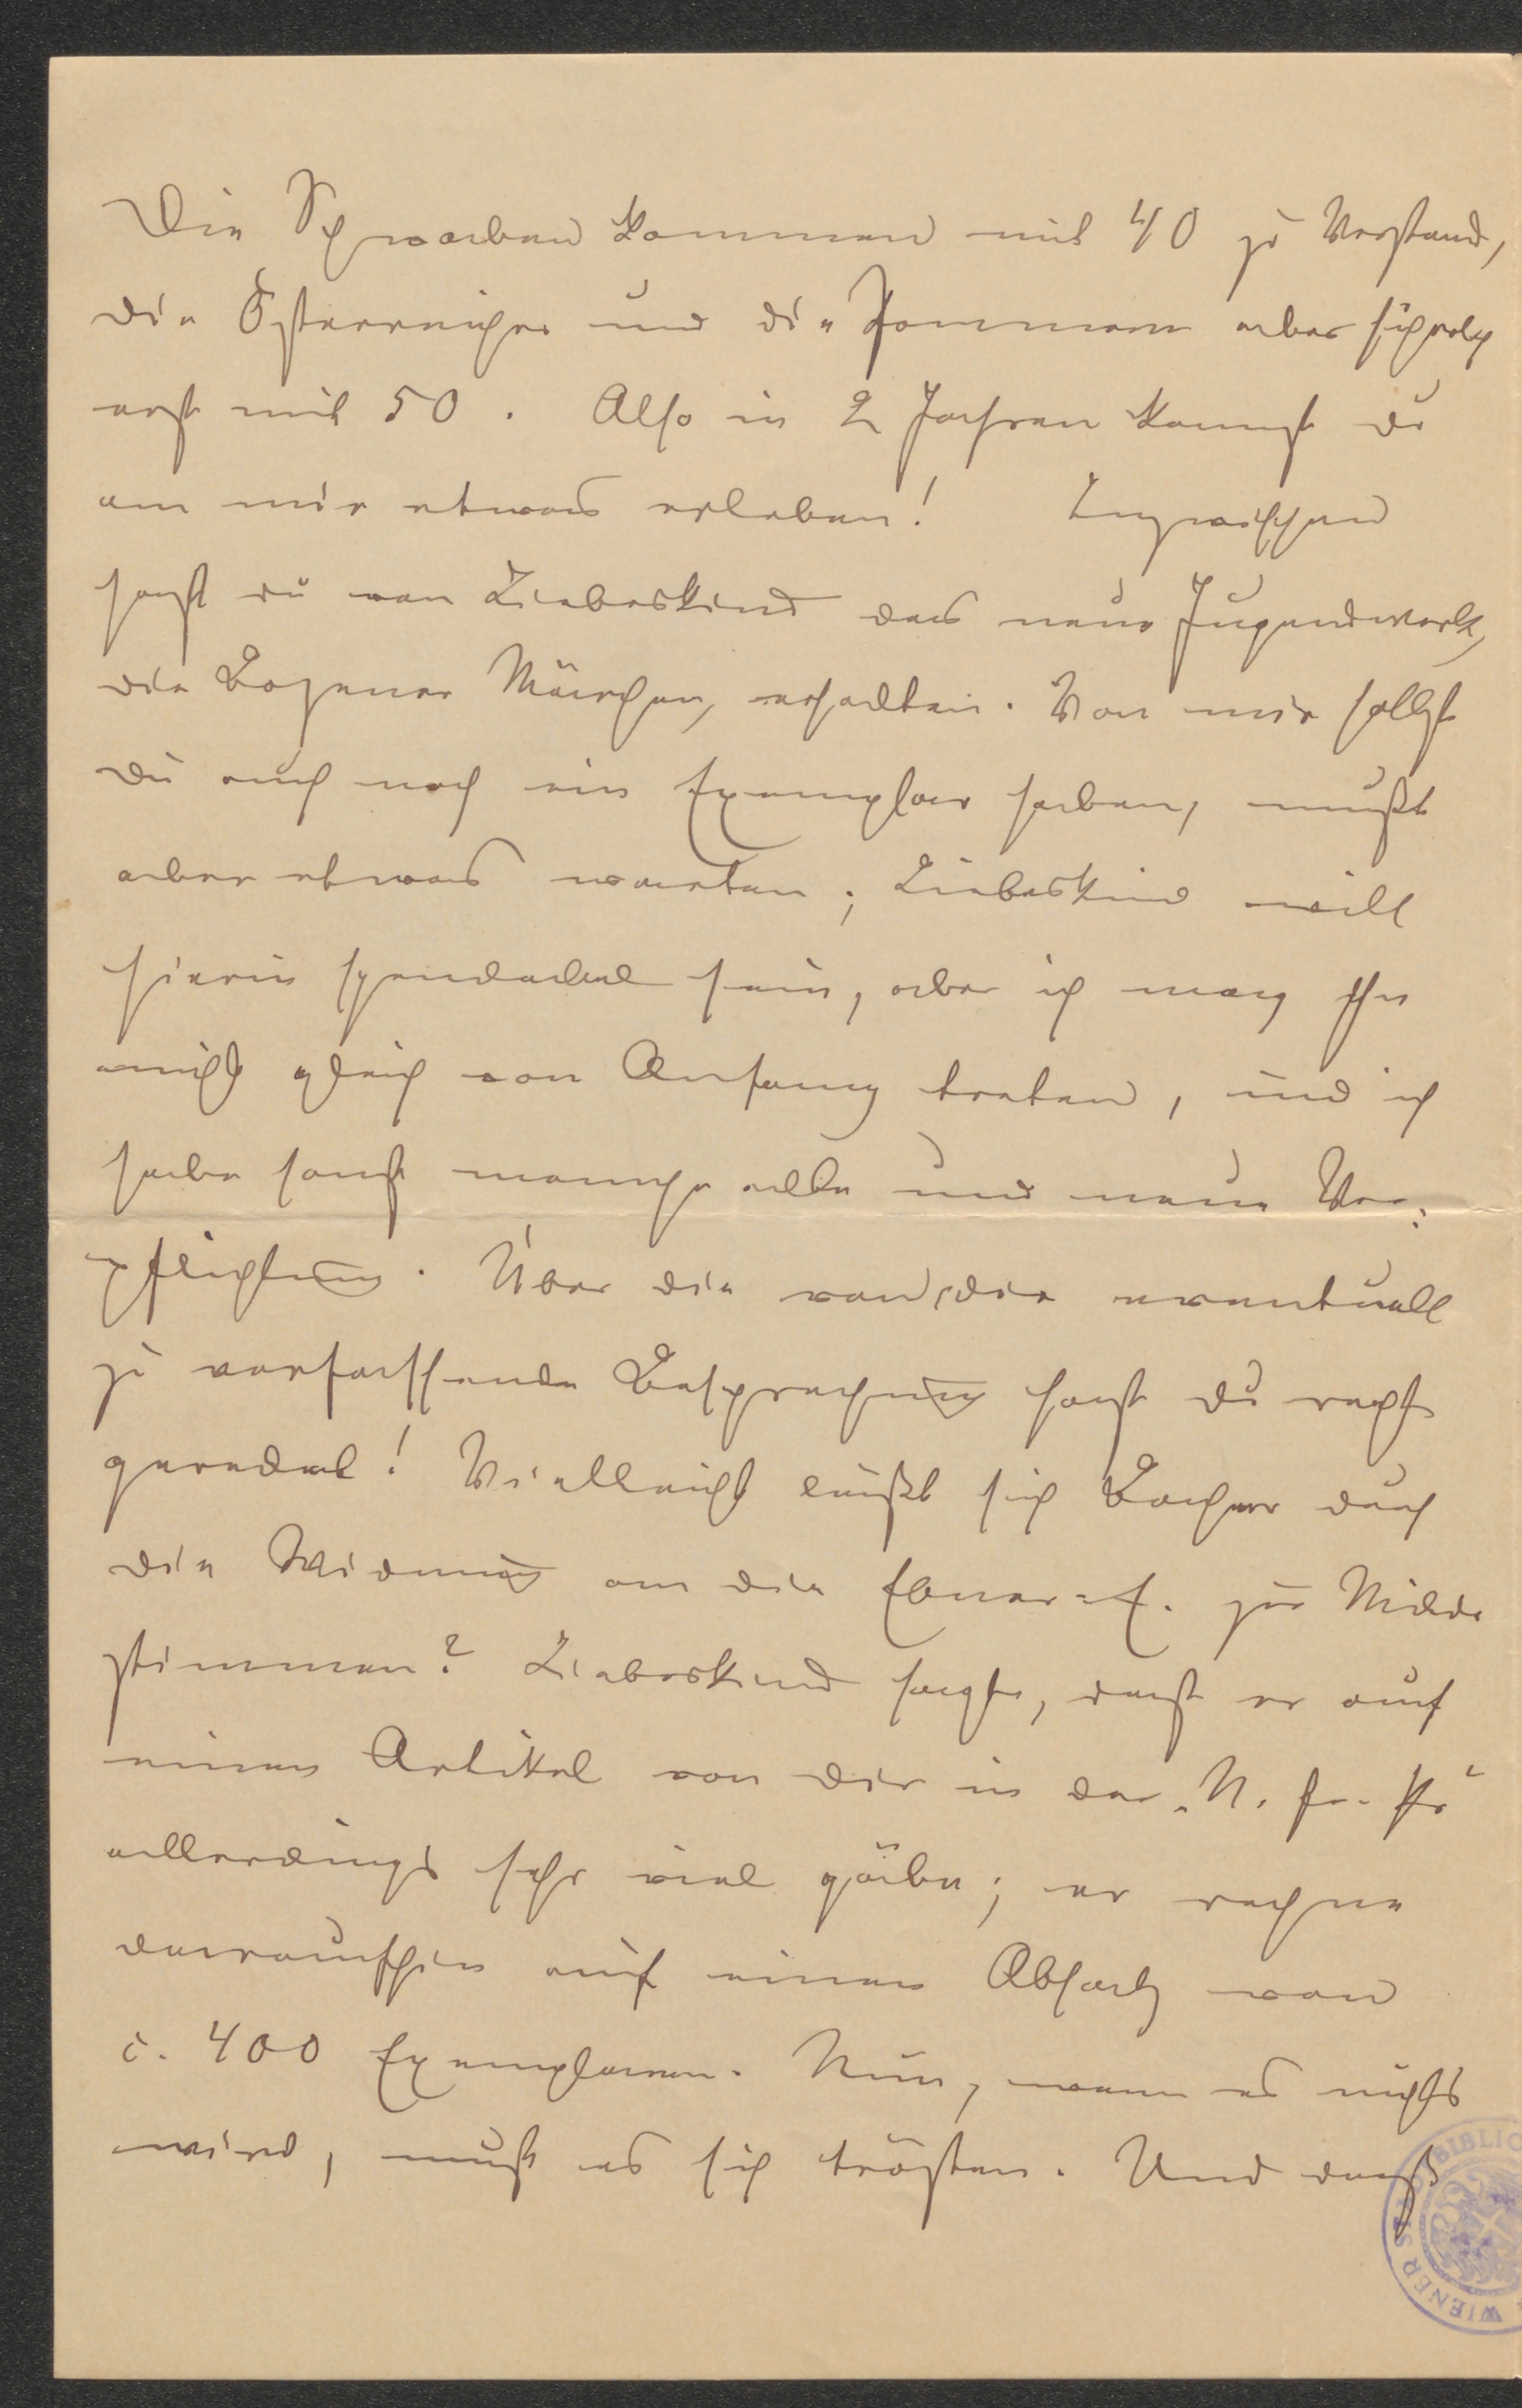 Die Schwaben kommen mit 40 zu Verstand,
die Österreicher und die Pommern aber
erst mit 50. Also in 2 Jahren kannst du
an mir etwas erleben! Inzwischen
hast du von Liebeskind das neue Jugendwerk,
die Bozener Märchen, erhalten. Von mir sollst
du auch noch ein Exemplar haben, mußt
aber etwas warten; Liebeskind will
hierin spendabel sein, aber ich mag ihn
nicht gleich von Anfang treten, und ich
habe sonst manche alte und neue Ver=
pflichtung. Über die von dir eventuell
zu verfassende Besprechung hast du recht
geredet! Vielleicht läßt sich Bacher durch
die Widmung an die Ebner=E. zur Milde
stimmen? Liebeskind sagte, daß er auf
einen Artikel von dir in der „N. fr. Pr“
allerdings sehr viel gäbe; er rechne
daraufhin auf einen Absatz von
c. 400 Exemplaren. Nun, wenn es nichts
wird, muß es sich trösten. Und daß
WIENER STADTBIBLIO